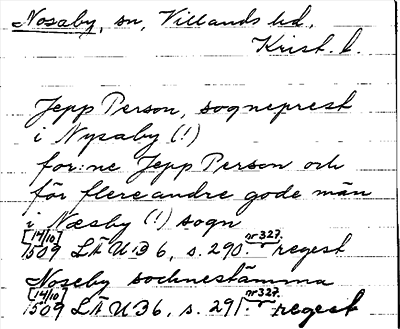 Nosaby, sn, Villands hd,
Krist. l.
Jepp Person, sogneprest
i Nysaby (!)
for:ne Jepp Person och
för flere andre gode män
i Næsby (!) sogn
[14/10]
1509 LÄU B 6, s. 290. nr 327. regest
Noseby sochnestämma
[14/10]
1509 LÄU B 6, s. 291. nr 327. regest